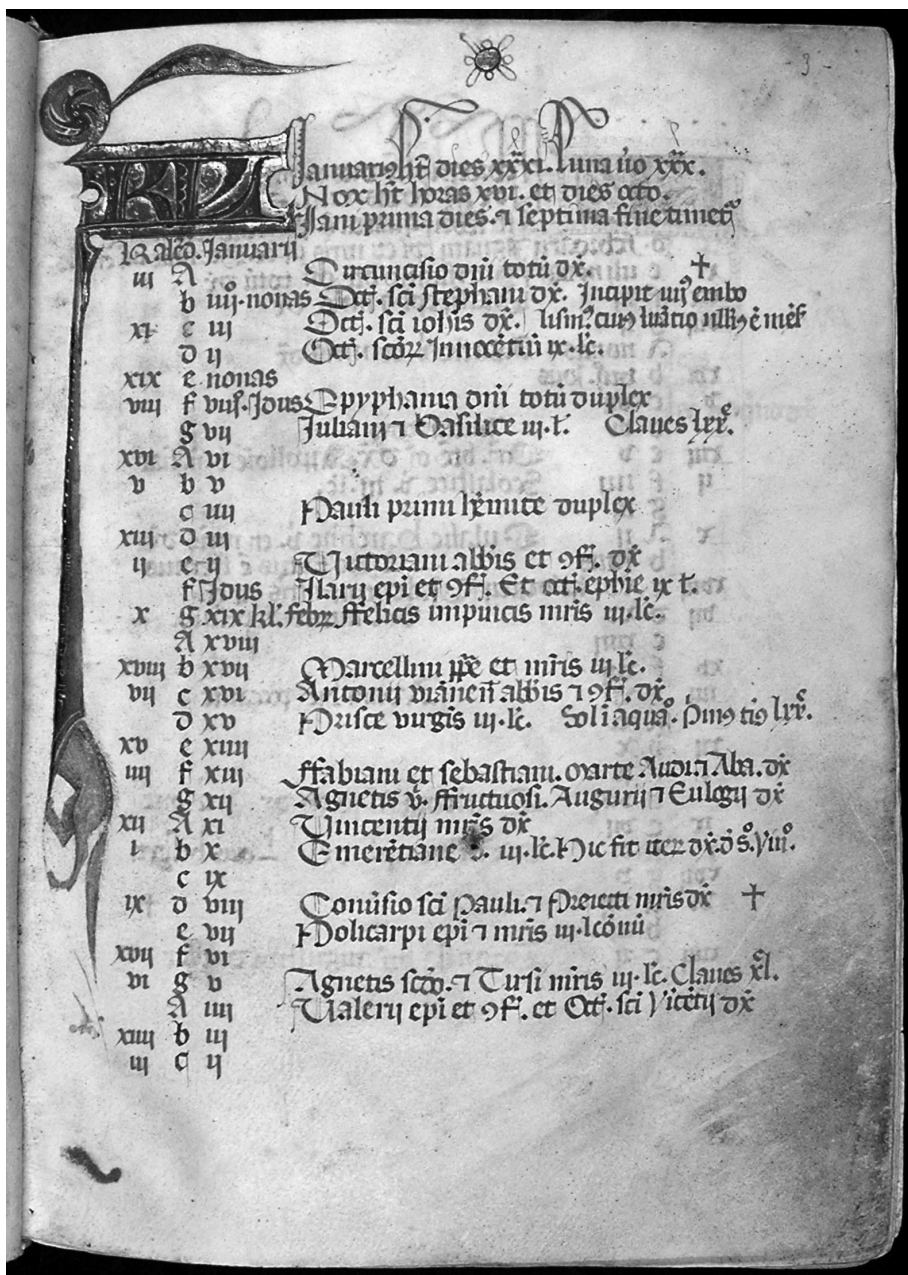 3
KL Januari9 ht dies xxxi. luna vo xxx.
Nox ht horas xvi. et dies octo.
Jani prima dies. ⁊ septima fine timet̃
Kaleñ. Januarii
iii A Circuncisio dñi totũ dx̃. ✝
b iiii. nonas Oct̃. sc̃i stephani dx̃. Incipit iiii embo
xi c iii Oct̃. sc̃i ioħis dx̃.
d ii Oct̃. sc̃oꝝ Innocẽtiũ ix. lc̃.
xix e nonas
viii f viii. Idus Epyphania dñi totũ duplex
g vii Juliani ⁊ Basilice iii. l̃. Claves lxx̃.
xvi A vi
v b v
c iiii Pauli primi hẽmite duplex
xiii d iii
ii e ii Victoriani abb̃is et ꝯf̃. dx̃
f Idus Ilarii ep̃i et ꝯf̃. Et oct̃. ep̃hie ix l̃.
x g xix kl̃. febꝝ ffelicis inpincis mr̃is iii. lc̃.
A xviii
xviii b xvii Marcellini pp̃e et mr̃is iii lc̃.
vii c xvi Antonii abb̃is ⁊ ꝯf̃. dx̃
d xv Prisce virgis iii. lc̃. Sol ĩ aqua͛. Pim9 ti9 lxx̃.
xv e xiiii
iiii f xiii ffabiani et sebastiani. marte Audi. ⁊ Aba. dx̃
g xii Agnetis ṽ. ffructuosi. Augurii ⁊ Eulogii dx̃
xii A xi Vincentii mr̃is dx̃
i b x Emerẽtiane iii. lc̃. Hic fit
c ix
ix d viii Conũsio sc̃i Pauli. ⁊ Preiecti mr̃is dx̃ ✝
e vii Policarpi ep̃i ⁊ mr̃is iii. lcõnũ
xvii f vi
vi g v Agnetis sc̃do. ⁊ Tirsi mr̃is iii. lc̃. Claves xl̃.
A iiii Valerii ep̃i et ꝯf̃. et Oct̃. sc̃i Vicẽtii dx̃
xiiii b iii
iii c ii